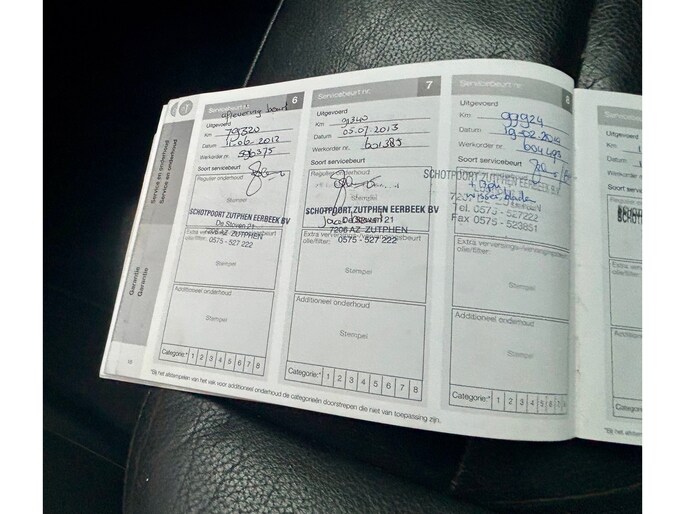 Service en onderhoud
Service en onderhoud
Garantie
Garantie
Servicebeurt nr. 6
aflevering beurt
Uitgevoerd
Km 79320
Datum 11.06.2012
Werkorder nr. 596375
Soort servicebeurt
Regulier onderhoud
SCHOTPOORT ZUTPHEN EERBEEK BV
De Stoven 21
7206 AZ ZUTPHEN
0575 - 527 222
olie/filter:
Additioneel onderhoud
Stempel
Categorie:* 1 2 3 4 5 6 7 8
Servicebeurt nr. 7
Uitgevoerd
Km 91340
Datum 05.07.2013
Werkorder nr. 601385
Soort servicebeurt
Regulier onderhoud
Stempel
SCHOTPOORT ZUTPHEN EERBEEK BV
De Stoven 21
7206 AZ ZUTPHEN
0575 - 527 222
Extra verversings-/vervangingsbeurt
olie/filter:
Stempel
Additioneel onderhoud
Stempel
Categorie:* 1 2 3 4 5 6 7 8
Servicebeurt nr. 8
Uitgevoerd
Km 99924
Datum 19-02-2014
Werkorder nr. 604493
Soort servicebeurt
SCHOTPOORT ZUTPHEN EERBEEK BV
Tel. 0575 - 527222
Fax 0575 - 523851
Extra verversings-/vervangingsbeurt
olie/filter:
Stempel
Additioneel onderhoud
Stempel
Categorie:* 1 2 3 4 5 6 7 8
*Bij het afstempelen van het vak voor additioneel onderhoud de categorieën doorstrepen die niet van toepassing zijn.
Servicebeurt
Uitgevoerd
Km
Datum
Werkorder
Soort se
Regulier
Extra ve
olie/filter:
Additione
Categorie
*Bij het afstem